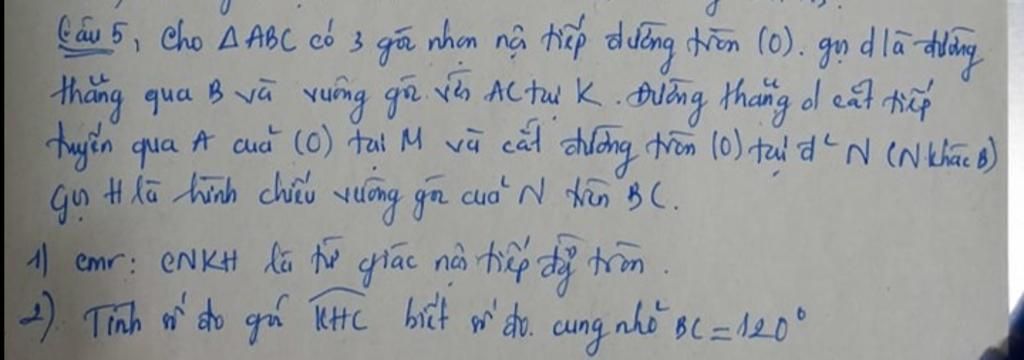 Câu 5, Cho △ABC có 3 góc nhọn nội tiếp đường tròn (O). gọi d là đường
thẳng qua B và vuông góc với AC tại K. Đường thẳng d cắt tiếp
tuyến qua A của (O) tại M và cắt đường tròn (O) tại đ² N (N khác B)
Gọi H là hình chiếu vuông góc của N trên BC.
1) cmr: CNKH là tứ giác nội tiếp đg tròn.
2). Tính số đo góc KHC biết số đo. cung nhỏ BC = 120°